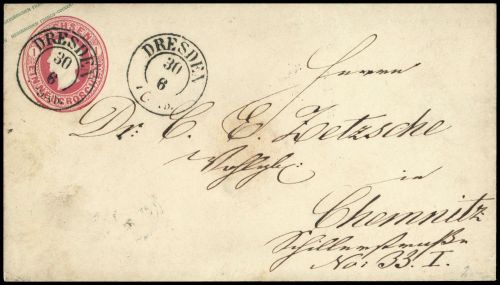 DRESDEN
30
6
DRESDEN
30
6
Herrn
Dr. C. E. Zetzsche
Wohlgb:
in
Chemnitz
Schillerstraße
No: 33. I.